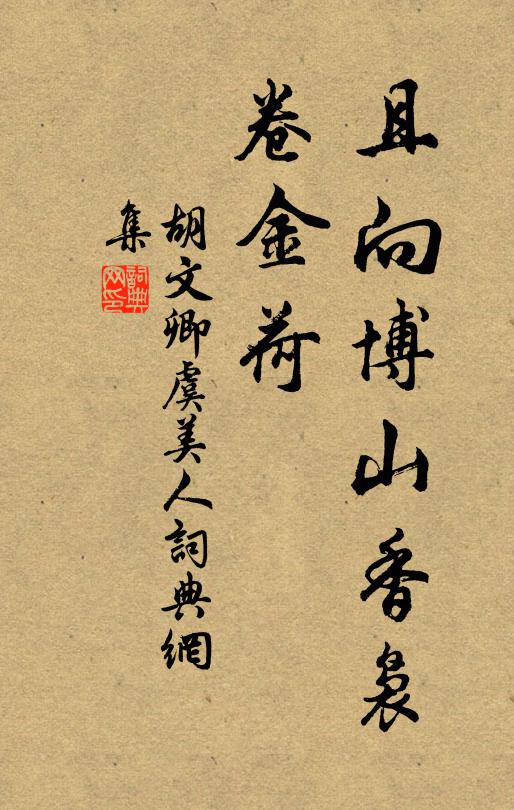 且向博山香裊
卷金荷
胡文卿虞美人詞典網
集
詞典網印